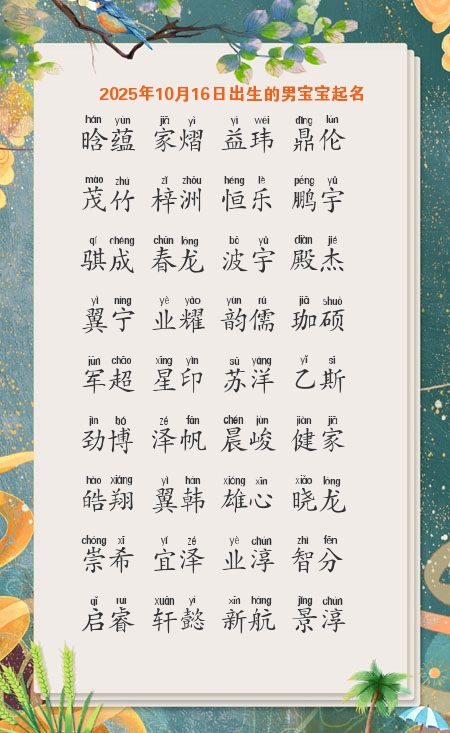 2025年10月16日出生的男宝宝起名
hán yùn jiā yì yì wěi dǐng lún
晗蕴 家熠 益玮 鼎伦
mào zhú zǐ zhōu héng lè péng yǔ
茂竹 梓洲 恒乐 鹏宇
qí chéng chūn lóng bō yǔ diàn jié
骐成 春龙 波宇 殿杰
yì níng yè yào yùn rú jiā shuò
翼宁 业耀 韵儒 珈硕
jūn chāo xīng yìn sū yáng yǐ sī
军超 星印 苏洋 乙斯
jìn bó zé fān chén jùn jiàn jiā
劲博 泽帆 晨峻 健家
hào xiáng yì hán xióng xīn xiǎo lóng
皓翔 翼韩 雄心 晓龙
chóng xī yí zé yè chún zhì fēn
崇希 宜泽 业淳 智分
qǐ ruì xuān yì xīn háng jǐng chún
启睿 轩懿 新航 景淳